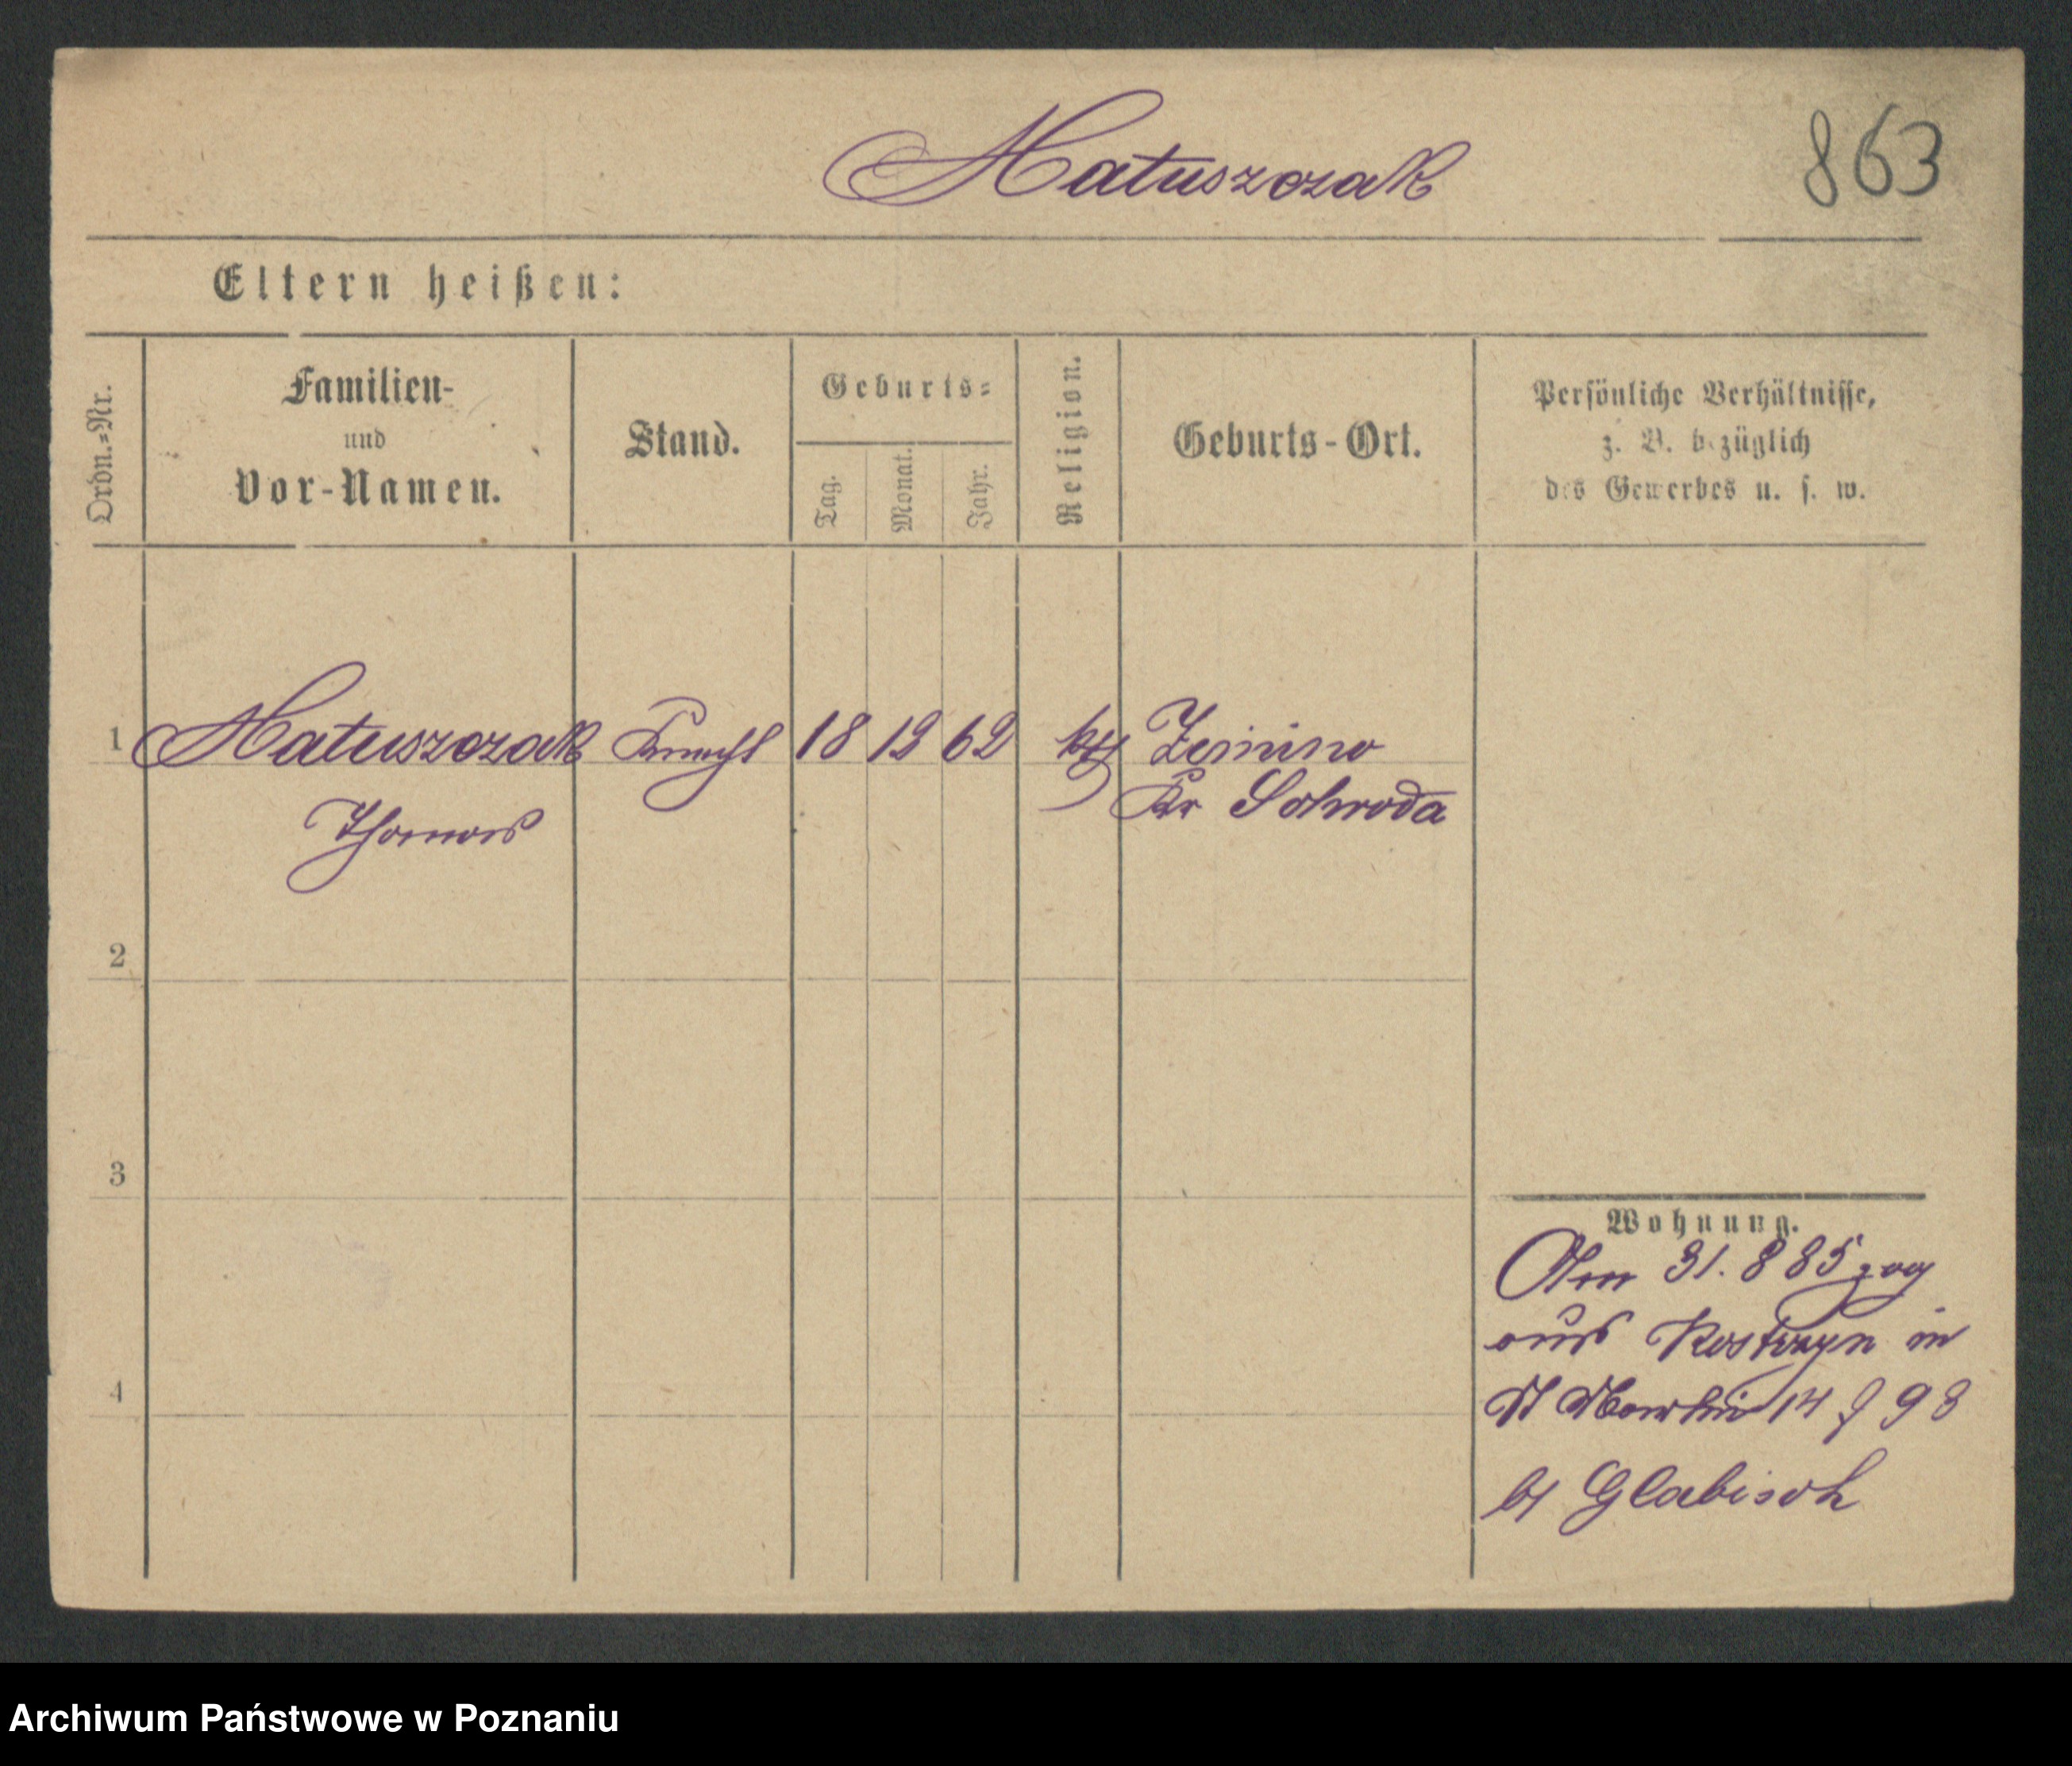 Matuszczak
863
Eltern heißen:
Ordn.=Nr.
Familien-
und
Vor-Namen.
Stand.
Geburts=
Tag.
Monat.
Jahr.
Religion.
Geburts-Ort.
Persönliche Verhältnisse,
z. B. bezüglich
des Gewerbes u. s. w.
1 Matuszczak Knecht 18 12 62 kth
Thomas
Kr Schroda
2
3
4
Wohnung.
Am 31. 8 85 zog
aus Kostrzyn in
14 98
bei Glabisch
Archiwum Państwowe w Poznaniu